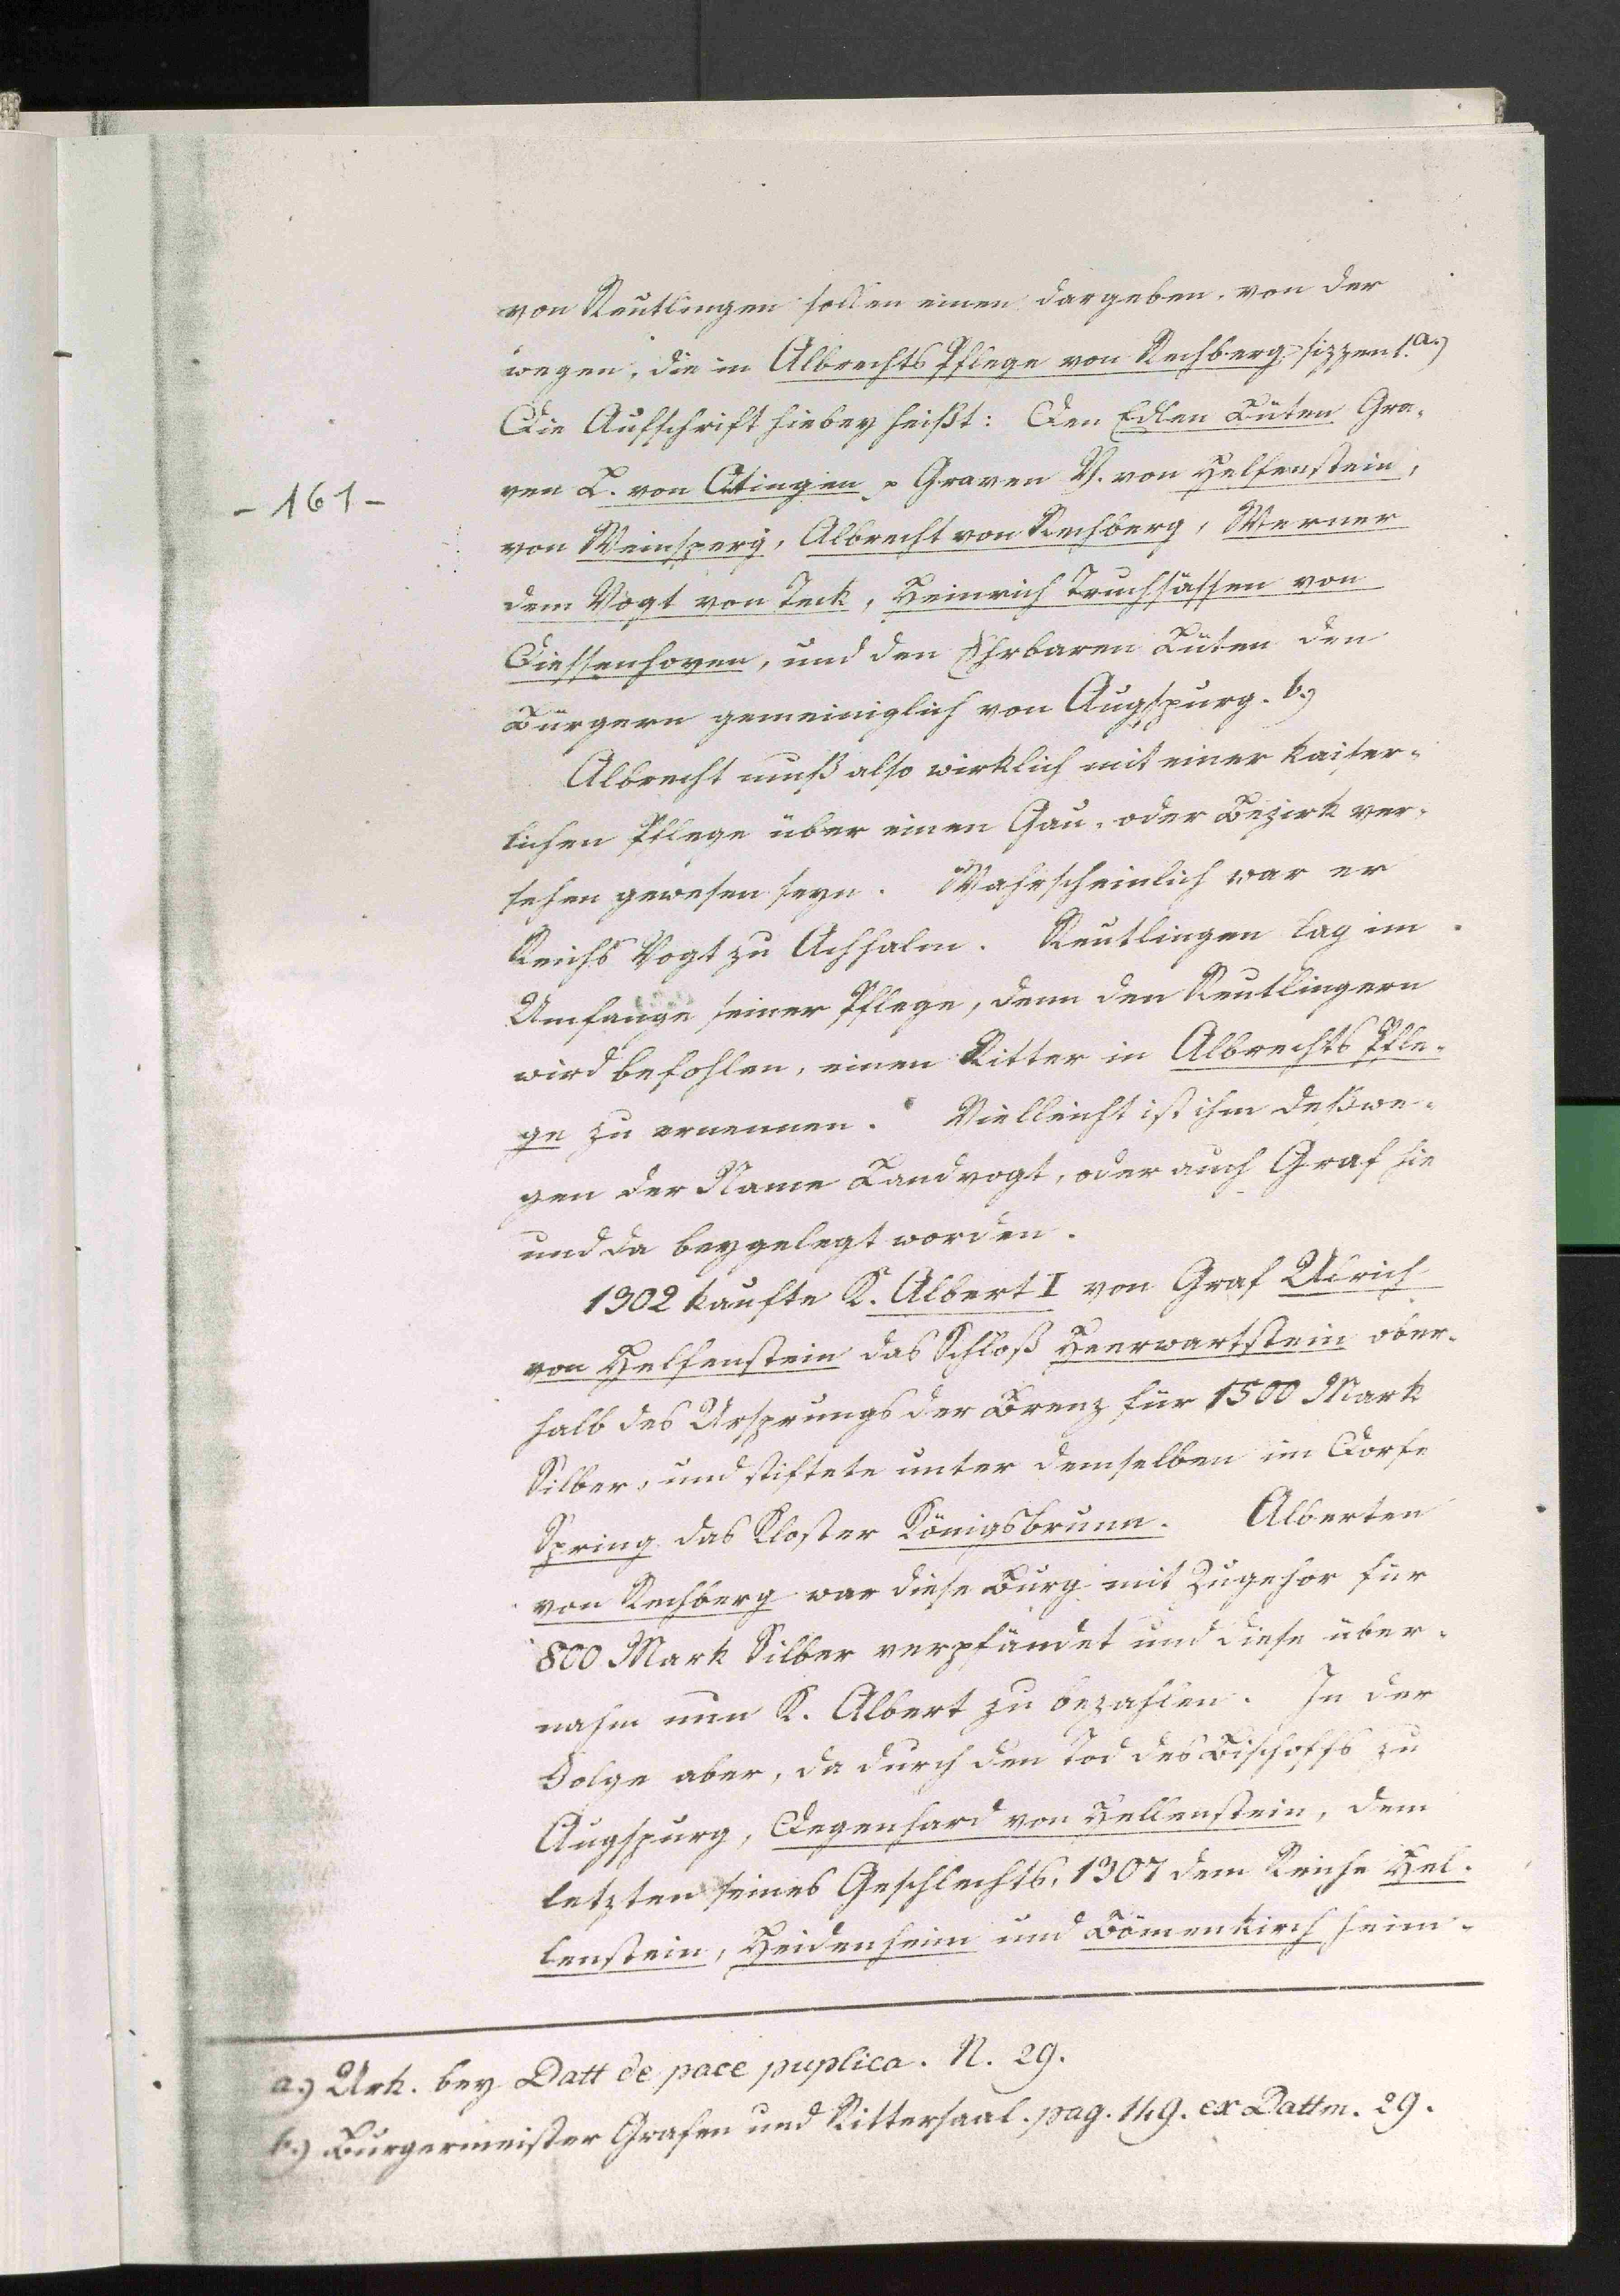 von Reutlingen sollen einen dargeben, von der
wegen, die in Albrechts Pflege von Rechberg sizzent. a.)
Die Aufschrift hiebey heißt: Den Edlen Lüten Gra-
ven L. von Otingen, Graven U. von Helfenstein,
- 161 -
von Weinsperg, Albrecht von Rechberg, Werner
dem Vogt von Teck, Heinrich Truchsässen von
Diessenhoven, und den Ehrbaren Lüten den
Bürgern gemeiniglich von Augspurg. b.)
Albrecht muß also wirklich mit einer kaiser-
lichen Pflege über einen Gau- oder Bezirk ver-
sehen gewesen seyn. Wahrscheinlich war er
Reichs Vogt zu Achhalm. Reutlingen lag im
Umfange seiner Pflege, denn den Reutlingern
wird befohlen, einen Ritter in Albrechts Pfle-
ge zu ernennen. Vielleicht ist ihm deßwe-
gen der Name Landvogt, oder auch Graf hie
und da beygelegt worden.
1302 kaufte K. Albert I von Graf Ulrich
von Helfenstein das Schloß Heerwartstein ober-
halb des Ursprungs der Brenz für 1500 Mark
Silber, und stiftete unter demselben im Dorfe
Spring das Kloster Königsbrunn. Alberten
von Rechberg war diese Burg mit Zugehör für
800 Mark Silber verpfändet und diese über-
nahm nun K. Albert zu bezahlen. In der
Folge aber, da durch den Tod des Bischoffs zu
Augspurg, Degenhard von Hellenstein, dem
letzten seines Geschlechts, 1307 dem Reiche Hel-
lenstein, Heidenheim und Bömenkirch heim-
a.) Urk. bey Datt de pace puplica. N. 29.
b.) Burgermeister Grafen und Rittersaal. pag. 149. ex Dattm. 29.